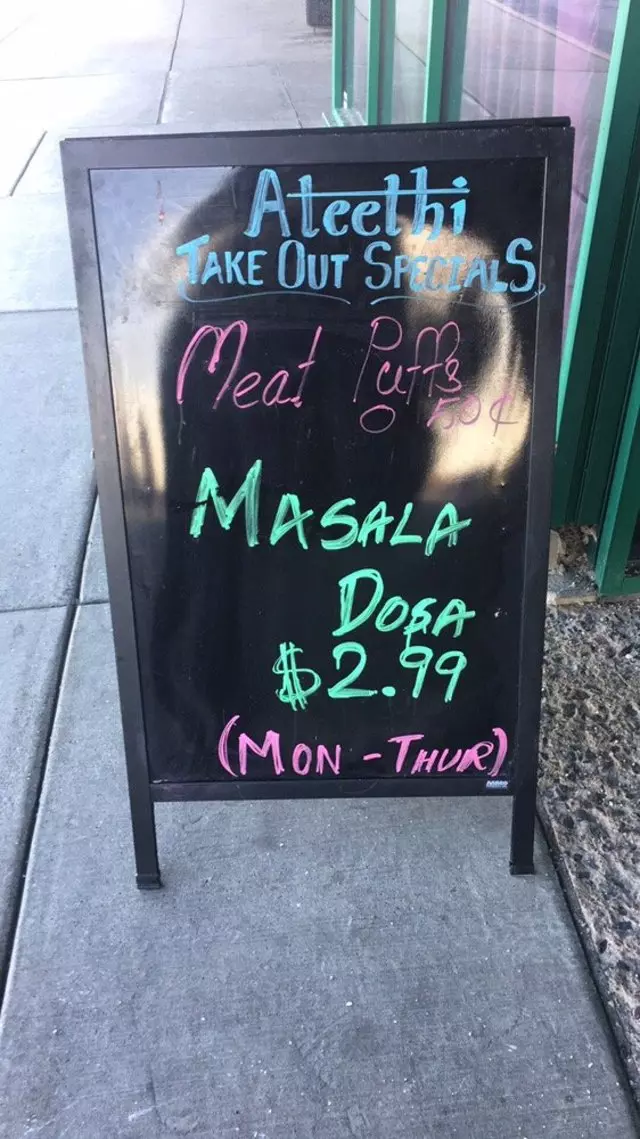 Ateethi
TAKE OUT SPECIALS
Meat Puffs
50¢
MASALA
DOSA
$2.99
(MON - THUR)